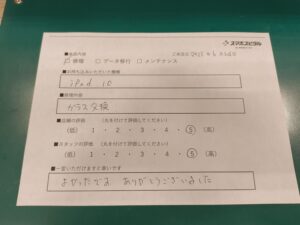 スマホスピタル
■依頼内容
ご来店日
☑ 修理 □ データ移行 □ メンテナンス
■お持ち込みいただいた機種
iPad 10
■修理内容
ガラス交換
■店舗の評価 (丸を付けて評価してください)
(低) 1 ・ 2 ・ 3 ・ 4 ・ 5 (高)
■スタッフの評価 (丸を付けて評価してください)
(低) 1 ・ 2 ・ 3 ・ 4 ・ 5 (高)
■一言いただけますと幸いです
よかったです ありがとうございました